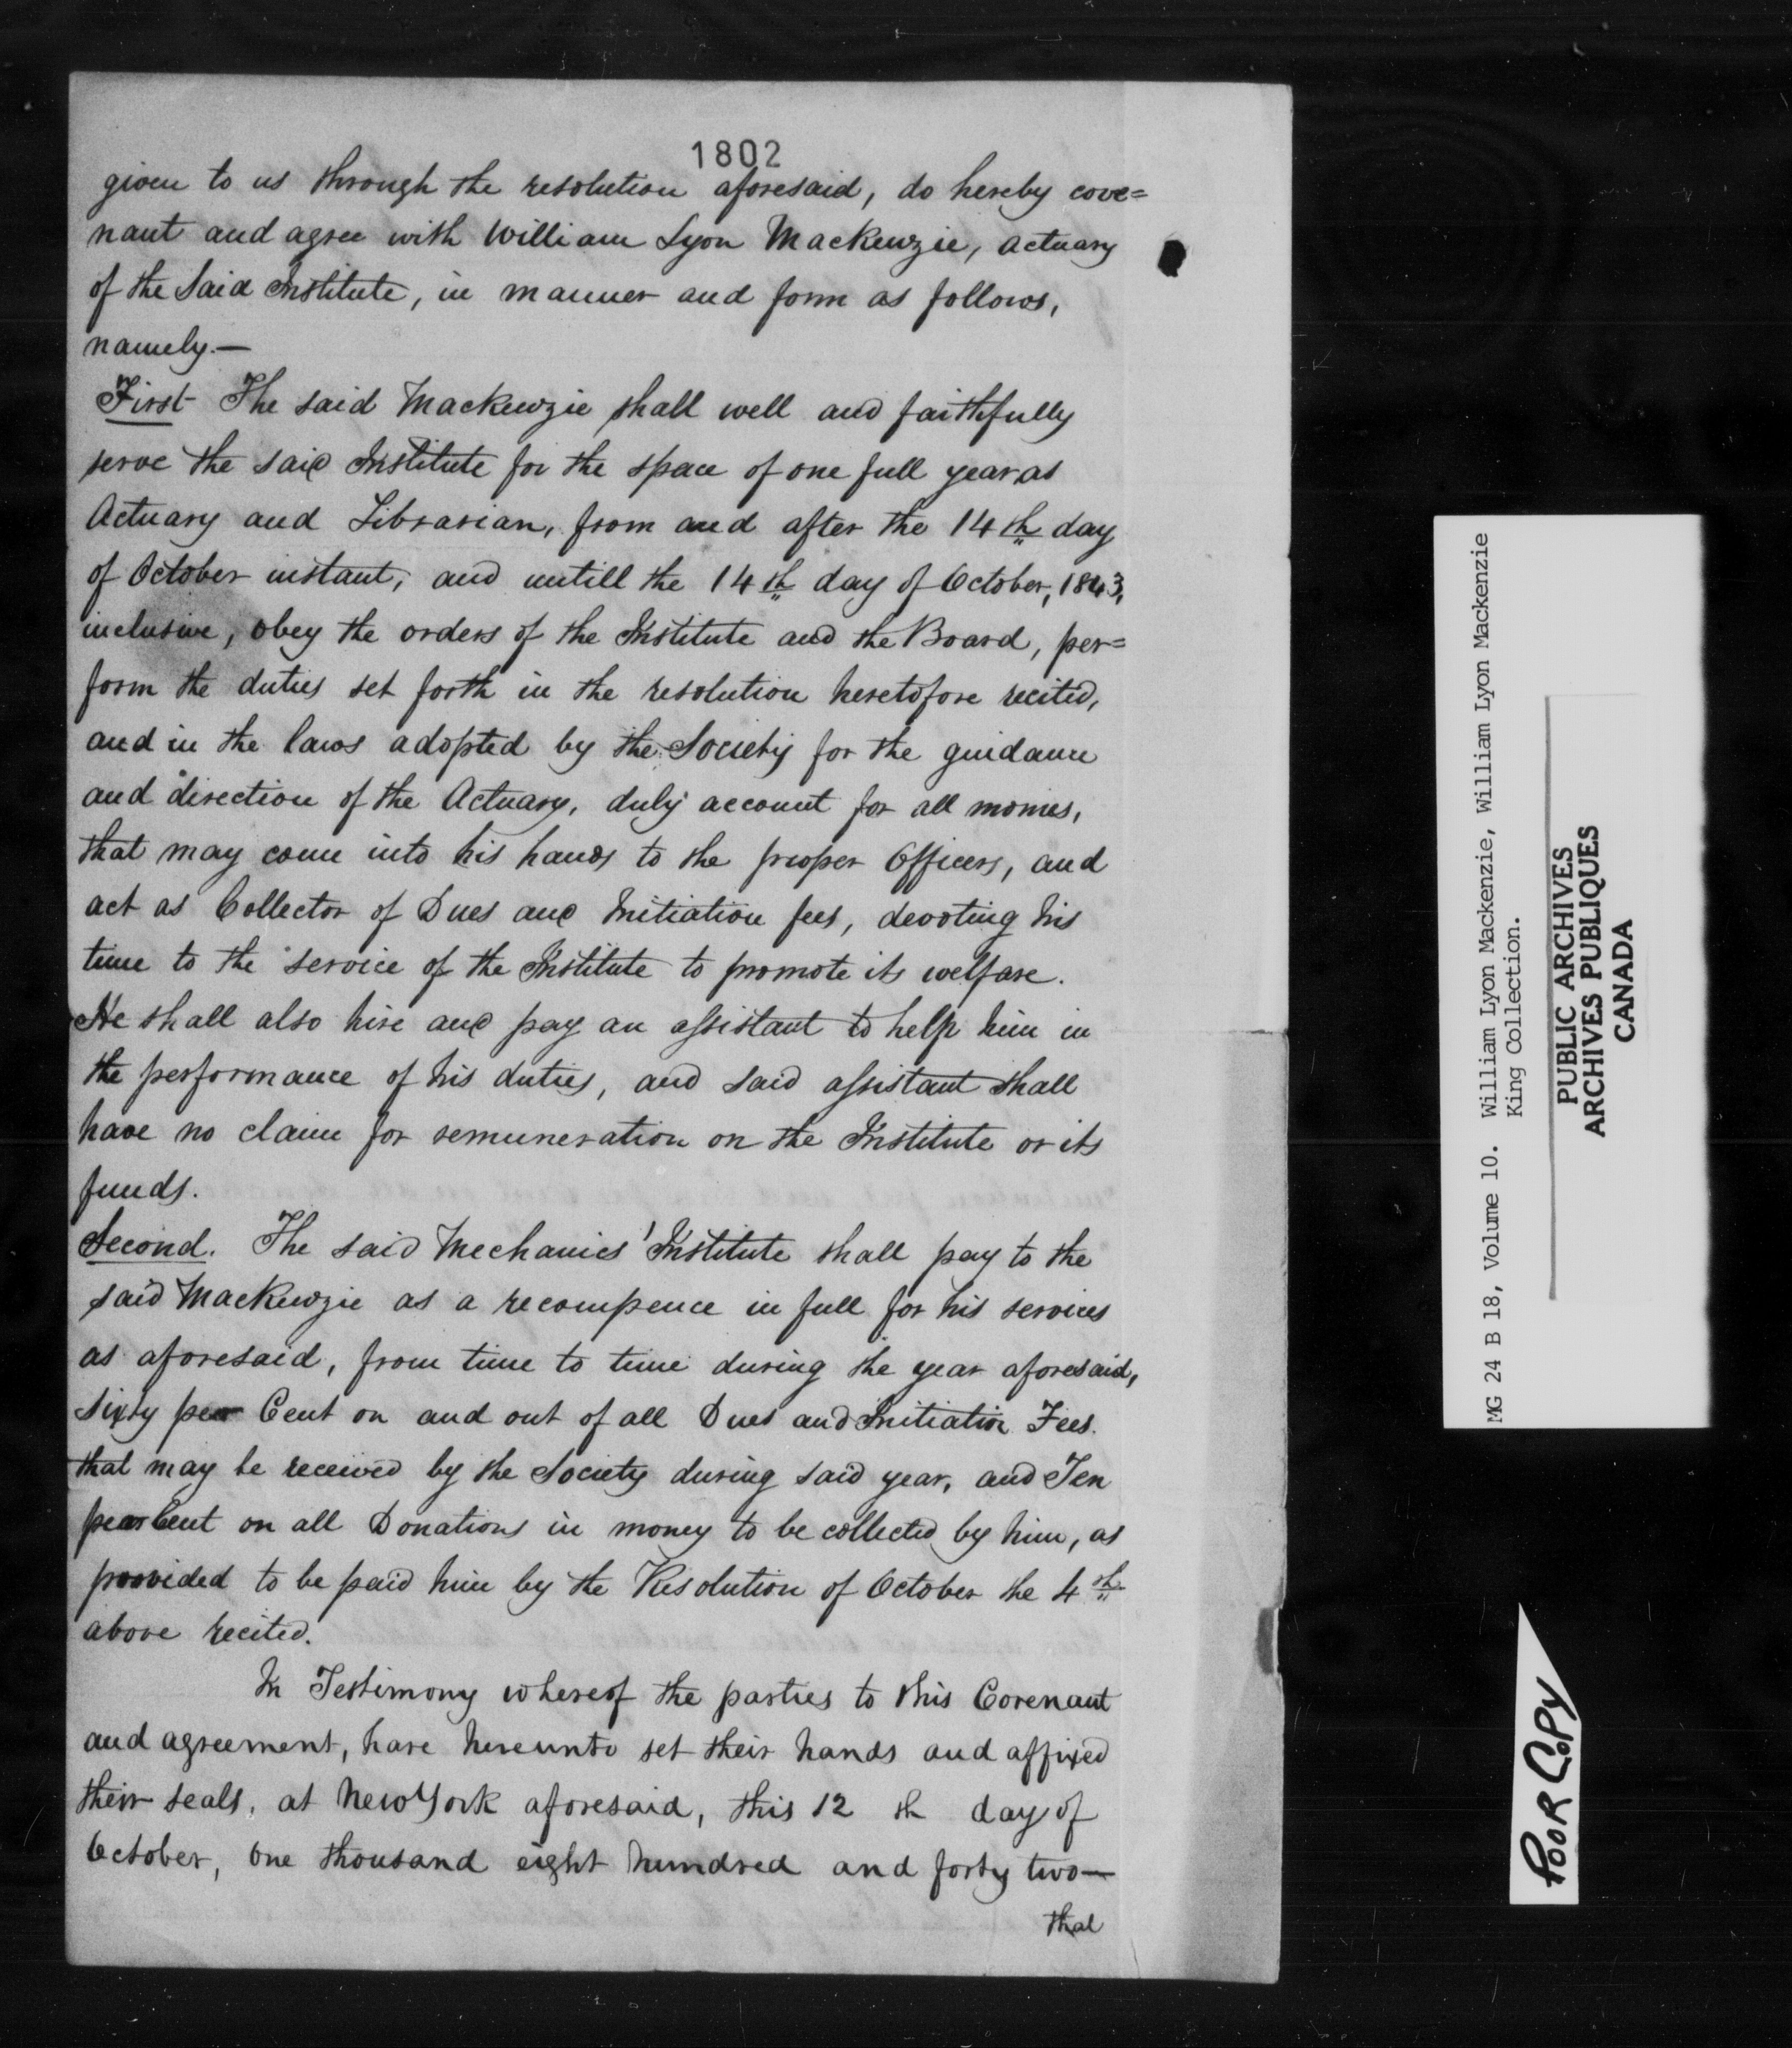 1802
given to us through the resolution aforesaid, do hereby cove=
nant and agree with William Lyon Mackenzie, Actuary
of the Said Institute, in manner and form as follows,
namely.—
First The said Mackenzie shall well and faithfully
serve the said Institute for the space of one full year, as
Actuary and Librarian, from and after the 14th day
of October instant, and untill the 14th day of October, 1843,
inclusive, obey the orders of the Institute and the Board, per=
form the duties set forth in the resolution heretofore recited,
and in the laws adopted by the Society for the guidance
and direction of the Actuary, duly account for all monies,
that may come into his hands to the proper Officers, and
act as Collector of Dues and Initiation fees, devoting his
time to the service of the Institute to promote its welfare.
He shall also hire and pay an assistant to help him in
the performance of his duties, and said assistant shall
have no claim for remuneration on the Institute or its
funds.
Second. The said Mechanics' Institute shall pay to the
said Mackenzie as a recompence in full for his services
as aforesaid, from time to time during the year aforesaid,
sixty per Cent on and out of all Dues and Initiation Fees.
that may be received by the Society during said year, and Ten
per Cent on all Donations in money to be collected by him, as
provided to be paid him by the Resolution of October the 4th
above recited.
In Testimony whereof the parties to this Covenant
and agreement, have hereunto set their hands and affixed
their seals, at New York aforesaid, this 12 th day of
October, one thousand eight hundred and forty two—
that
MG 24 B 18, Volume 10. William Lyon Mackenzie, William Lyon Mackenzie
King Collection.
PUBLIC ARCHIVES
ARCHIVES PUBLIQUES
CANADA
POOR COPY